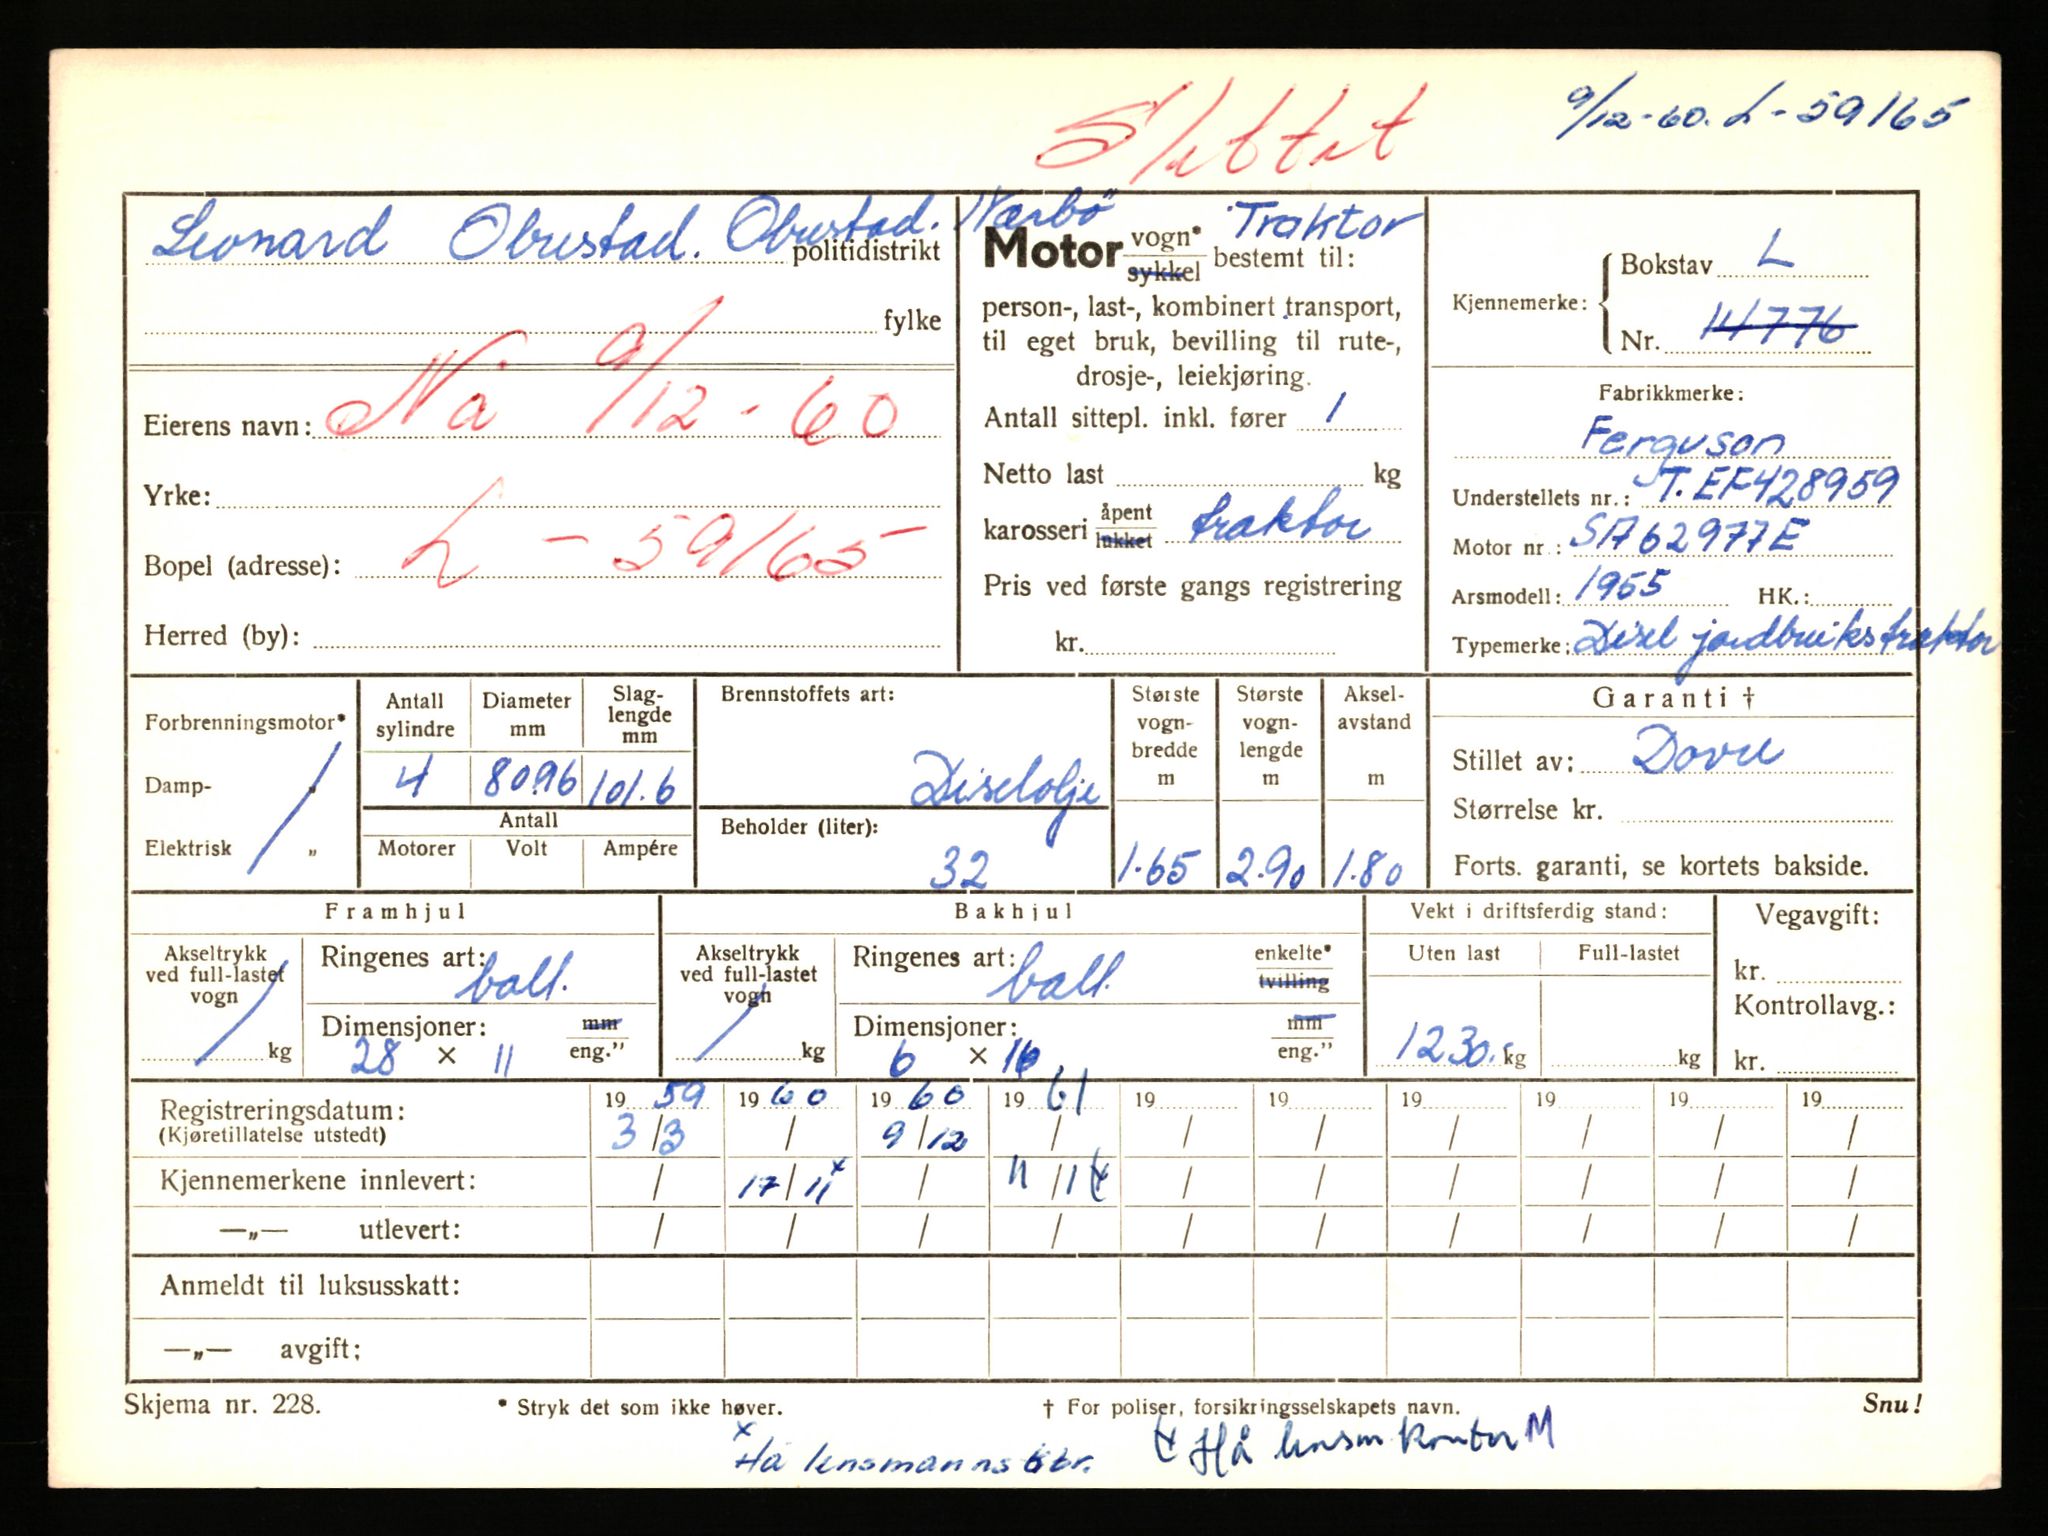 Slettet
9/12-60. L-59165
Leonard Obrestad. Obrestad. Nærbö
politidistrikt
fylke
Eierens navn: Nå 9/12-60
Yrke:
Bopel (adresse): L-59165
Herred (by):
Traktor
Motor vogn* sykkel bestemt til:
person-, last-, kombinert transport,
til eget bruk, bevilling til rute-,
drosje-, leiekjøring.
Antall sittepl. inkl. fører 1
Netto last kg
karosseri åpent lukket traktor
Pris ved første gangs registrering
kr.
Kjennemerke: Bokstav L
Nr. 14776
Fabrikkmerke:
Ferguson
Understellets nr.: T.EF428959
Motor nr.: SA62977E
Arsmodell: 1955 HK.:
Typemerke: Disel jordbrukstraktor
Forbrenningsmotor*
Damp- "
Elektrisk "
Antall sylindre
Diameter mm
Slaglengde mm
4 80.96 101.6
Antall
Motorer Volt Ampére
Brennstoffets art:
Diselolje
Beholder (liter):
32
Største vogn-bredde m
1.65
Største vogn-lengde m
2.90
Aksel-avstand m
1.80
Garanti †
Stillet av: Dovre
Størrelse kr.
Forts. garanti, se kortets bakside.
Framhjul
Akseltrykk ved full-lastet vogn
kg
Ringenes art: ball.
Dimensjoner: mm eng."
28 × 11
Bakhjul
Akseltrykk ved full-lastet vogn
kg
Ringenes art: ball. enkelte* tvilling
Dimensjoner: mm eng."
6 × 16
Vekt i driftsferdig stand:
Uten last Full-lastet
1230. kg kg
Vegavgift:
kr.
Kontrollavg.:
kr.
Registreringsdatum: 1959 1960 1960 1961 19 19 19 19 19 19
(Kjøretillatelse utstedt) 3/3 / 9/12 / / / / / / /
Kjennemerkene innlevert: / 17/11 x / 11/11 / / / / / /
—„— utlevert: / / / / / / / / / /
Anmeldt til luksusskatt:
—„— avgift:
Skjema nr. 228. * Stryk det som ikke høver. † For poliser, forsikringsselskapets navn. Snu!
x Hå lensmannsktr. Hå lensm kontor M